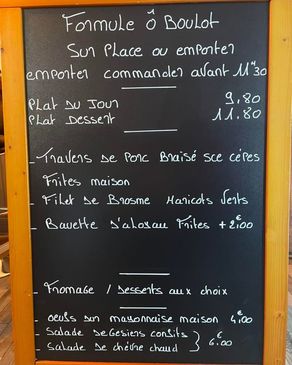 Formule Ô Boulot
Sur Place ou emporter
emporter commander avant 11H30
Plat du Jour 9,80
Plat Dessert 11.80
- Travers de Porc Braisé sce cèpes
Frites maison
- Filet de Brosme Haricots Verts
- Bavette d'aloyau Frites + 2,00€
- Fromage / Desserts aux choix
- oeufs dur mayonnaise maison 4,00€
- Salade de gesiers confits
- Salade de chèvre chaud } 6.00€